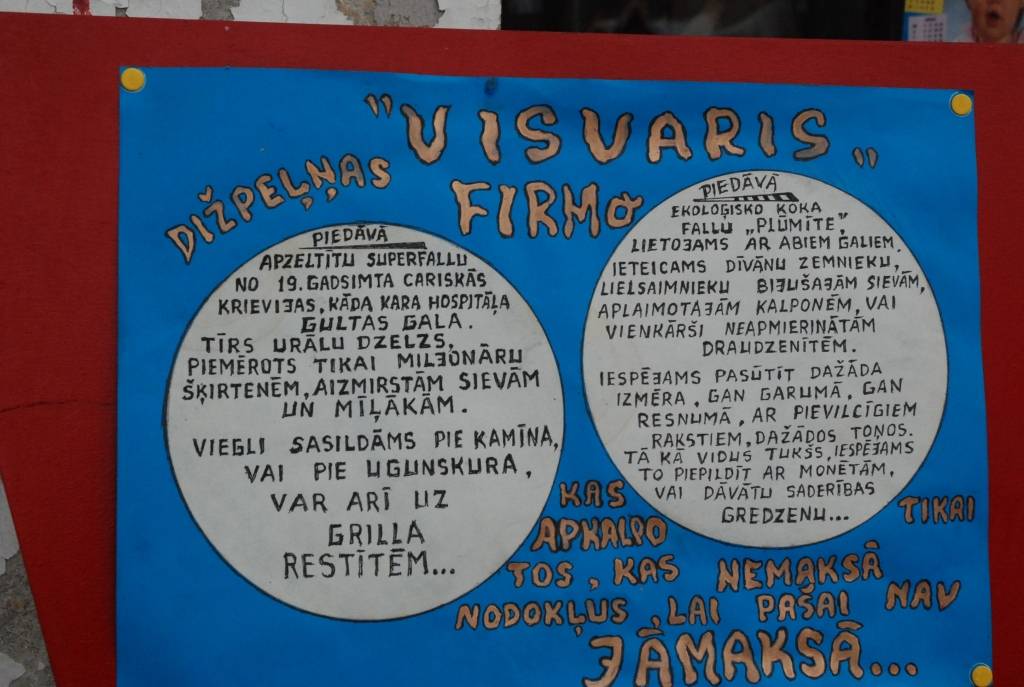 "VISVARIS"
DIŽPEĻŅAS
FIRMA
PIEDĀVĀ
APZELTĪTU SUPERFALLU
NO 19. GADSIMTA CARISKĀS
KRIEVIJAS, KĀDA KARA HOSPITĀĻA
GULTAS GALA.
TĪRS URĀLU DZELZS,
PIEMĒROTS TIKAI MILJONĀRU
ŠĶIRTENĒM, AIZMIRSTĀM SIEVĀM
UN MĪĻĀKĀM.
VIEGLI SASILDĀMS PIE KAMĪNA,
VAI PIE UGUNSKURA,
VAR ARĪ UZ
GRILLA
RESTĪTĒM...
PIEDĀVĀ
EKOLOĢISKO KOKA
FALLU „PLŪMĪTE",
LIETOJAMS AR ABIEM GALIEM.
IETEICAMS DĪVĀNU ZEMNIEKU,
LIELSAIMNIEKU BIJUŠAJĀM SIEVĀM,
APLAIMOTAJĀM KALPONĒM, VAI
VIENKĀRŠI NEAPMIERINĀTĀM
DRAUDZENĪTĒM.
IESPĒJAMS PASŪTĪT DAŽĀDA
IZMĒRA, GAN GARUMĀ, GAN
RESNUMĀ, AR PIEVILCĪGIEM
RAKSTIEM, DAŽĀDOS TOŅOS.
TĀ KĀ VIDUS TUKŠS, IESPĒJAMS
TO PIEPILDĪT AR MONĒTĀM,
VAI DĀVĀTU SADERĪBAS
GREDZENU...
KAS
APKALPO
TIKAI
TOS, KAS NEMAKSĀ
NODOKĻUS, LAI PAŠAI NAV
JĀMAKSĀ...